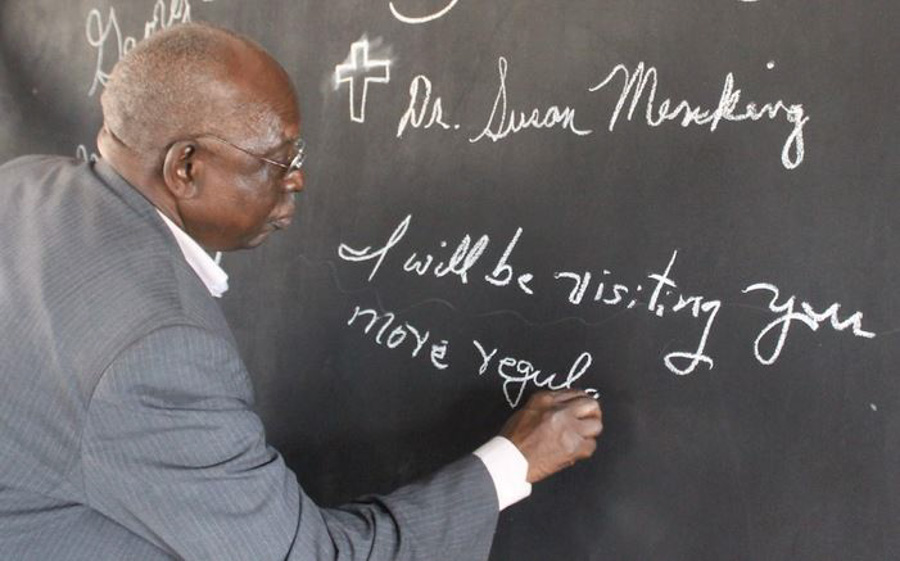 Dr. Susan Mencking
I will be visiting you
more regul